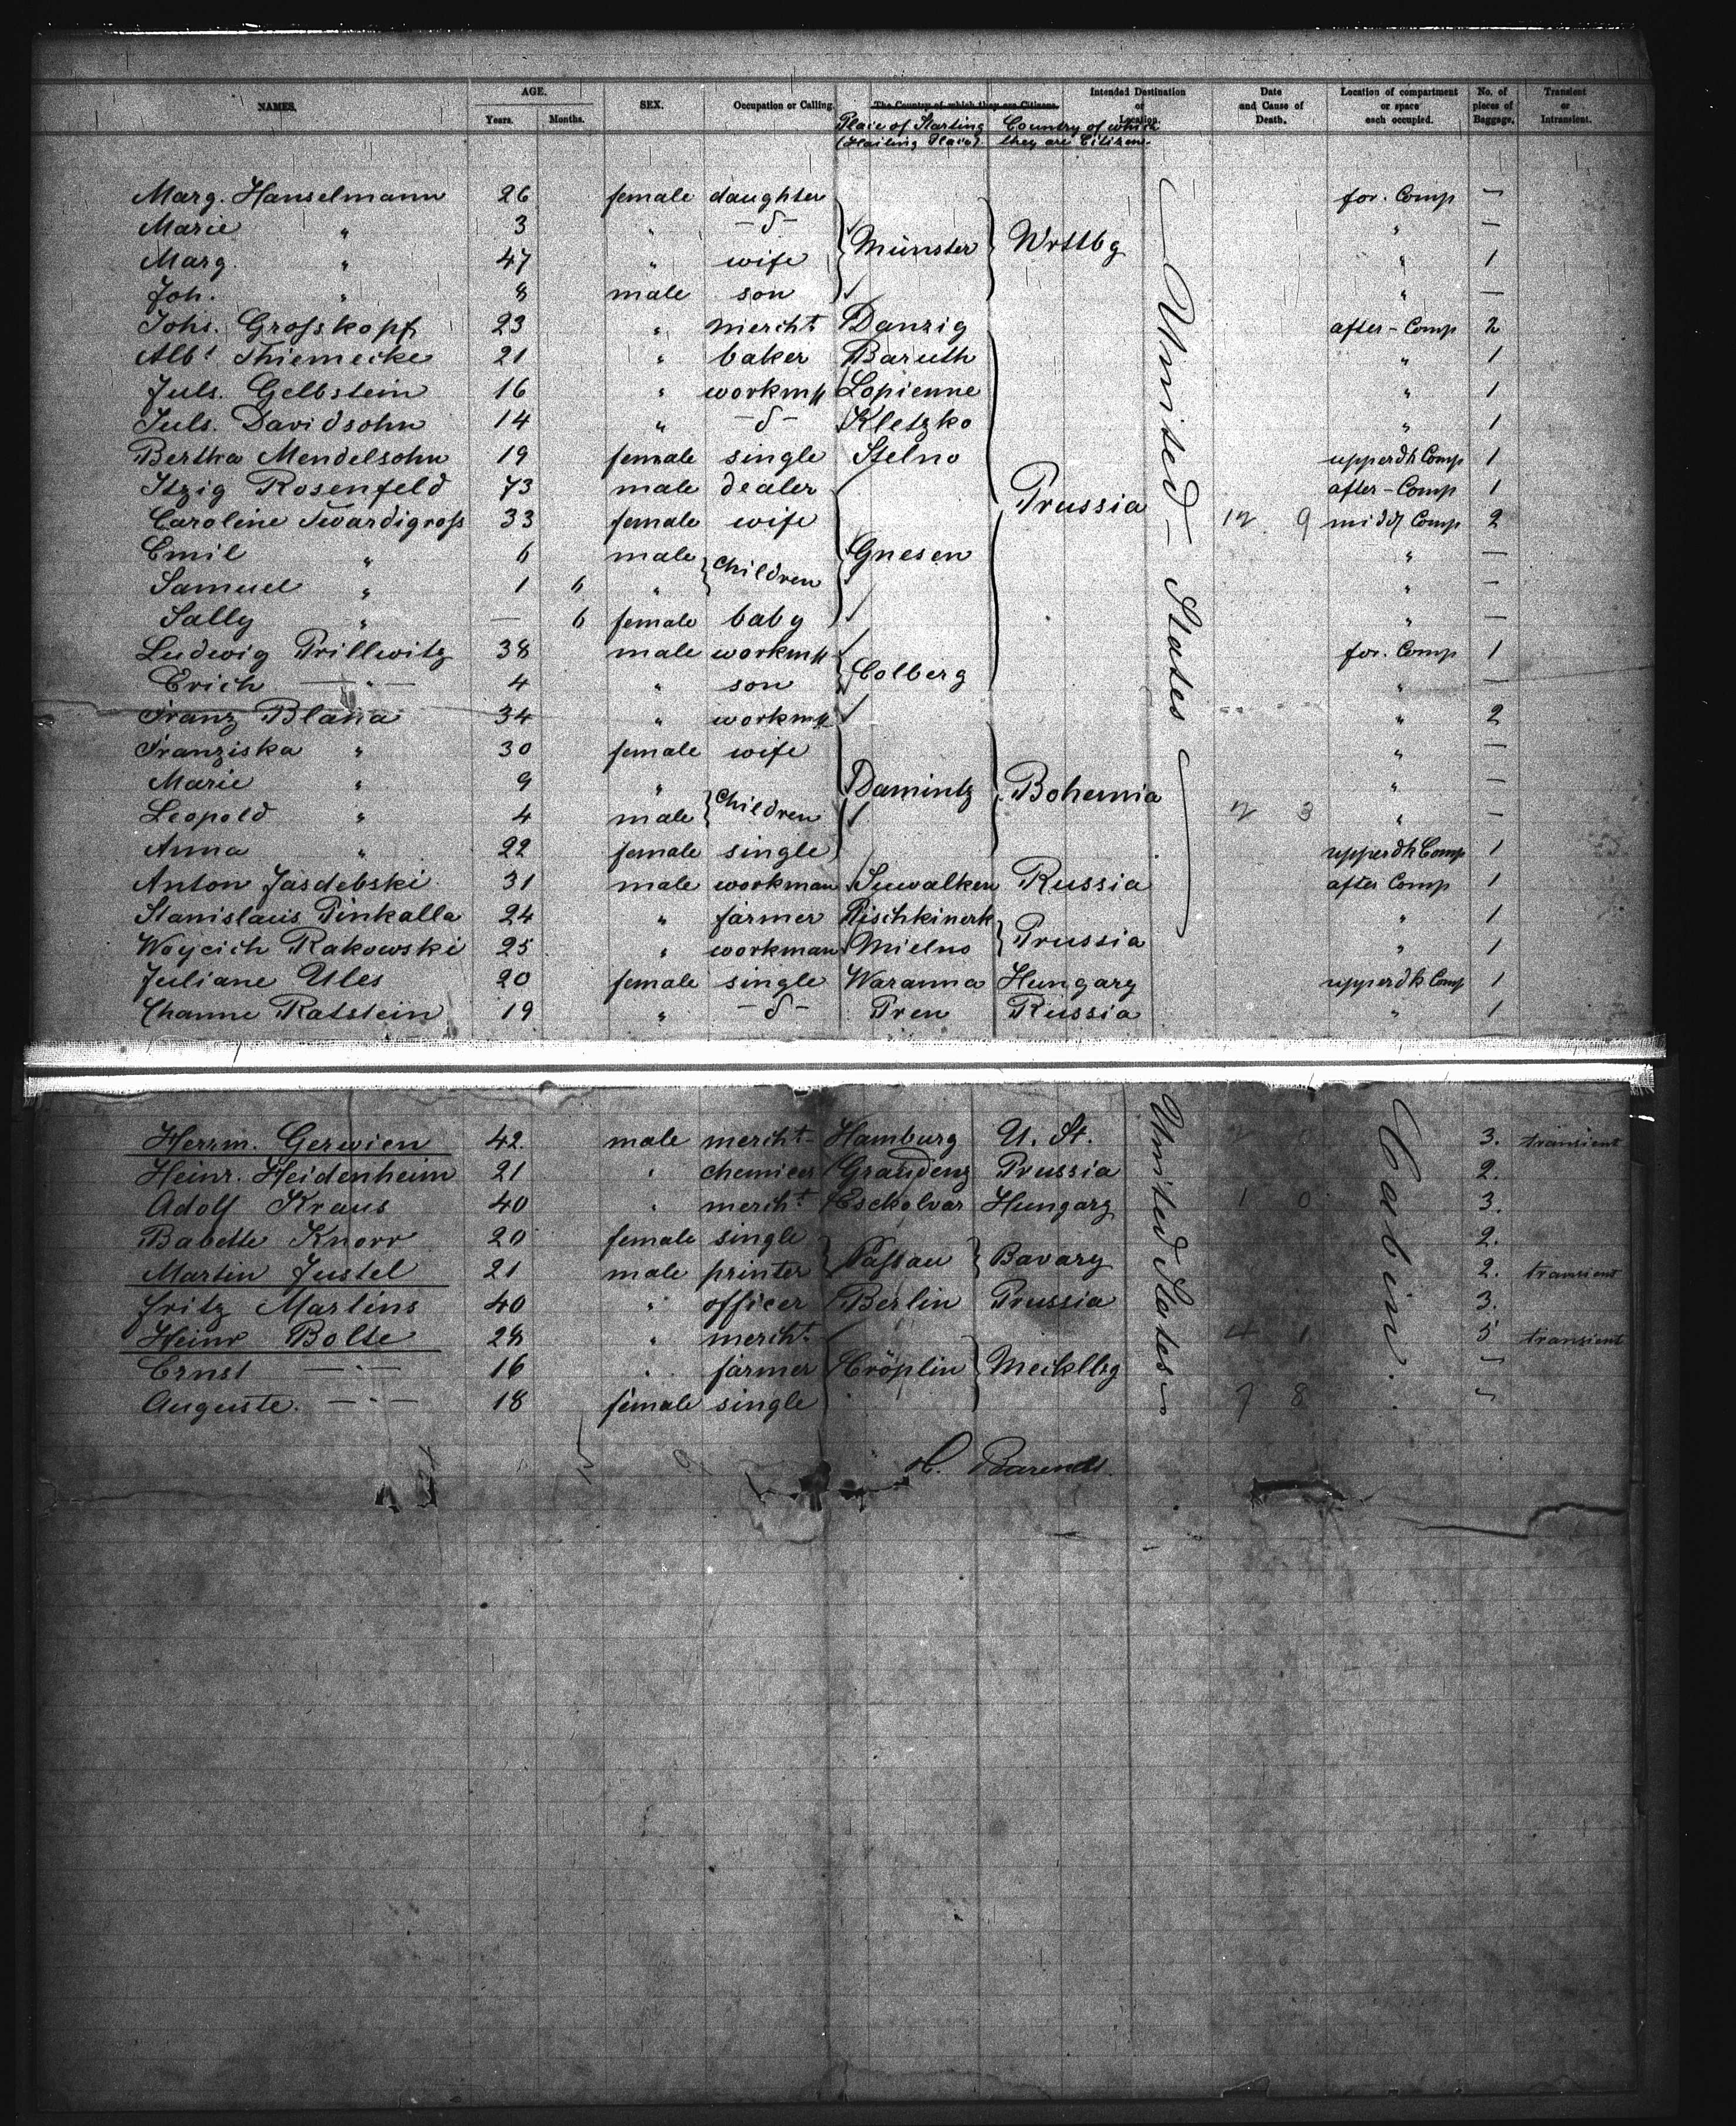 NAMES. AGE. Years. Months. SEX. Occupation or Calling. The Country of which they are Citizens. Intended Destination or Location. Date and Cause of Death. Location of compartment or space each occupied. No. of pieces of Baggage. Transient or Intransient.
Place of Starting (Hailing Place) Country of which they are Citizens
Marg. Hanselmann 26 female daughter for. Comp —
Marie " 3 " -d- Münster Wrttbg " —
Marg. " 47 " wife " 1
Joh. " 8 male son " —
Johs. Grosskopf 23 " mercht Danzig after-Comp 2
Albt Thiemecke 21 " baker Baruth " 1
Juls. Gelbstein 16 " workm Lopienne " 1
Juls. Davidsohn 14 " -d- Kletzko " 1
Bertha Mendelsohn 19 female single Stelno upperdk Comp 1
Itzig Rosenfeld 73 male dealer Prussia after-Comp 1
Caroline Twardigross 33 female wife 12 9 midd Comp 2
Emil " 6 male Children Gnesen " —
Samuel " 1 6 " " —
Sally " — 6 female baby " —
Ludwig Prillwitz 38 male workm Colberg for. Comp 1
Erich — " — 4 " son " —
Franz Blana 34 " workm " 2
Franziska " 30 female wife " —
Marie " 9 " Children Damintz Bohemia " —
Leopold " 4 male 12 3 " —
Anna " 22 female single upperdk Comp 1
Anton Jasdebski 31 male workman Suwalken Russia after Comp 1
Stanislaus Pinkalla 24 " farmer Pischkinerk Prussia " 1
Woycich Rakowski 25 " workman Mielno " 1
Juliane Ules 20 female single Waranna Hungary upperdk Comp 1
Channe Ratstein 19 " -d- Pren Russia " 1
United-States
Herrm. Gerwien 42 male mercht Hamburg U. St. 2 0 3. transient
Heinr. Heidenheim 21 " chemicer Graudenz Prussia 2.
Adolf Kraus 40 " mercht Esckolvar Hungary 1 0 3.
Babette Knorr 20 female single Passau Bavary 2.
Martin Justel 21 male printer 2. transient
Fritz Martins 40 " officer Berlin Prussia 3.
Heinr Bolte 28 " mercht 4 1 5 transient
Ernst — " — 16 " farmer Cröplin Mecklbg "
Auguste. — " — 18 female single 7 8 "
United States
Cabin
H. Barends.